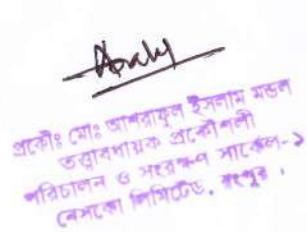 প্রকৌঃ মোঃ আশরাফুল ইসলাম মন্ডল
তত্ত্বাবধায়ক প্রকৌশলী
পরিচালন ও সংরক্ষণ সার্কেল-১
নেসকো লিমিটেড, রংপুর ।